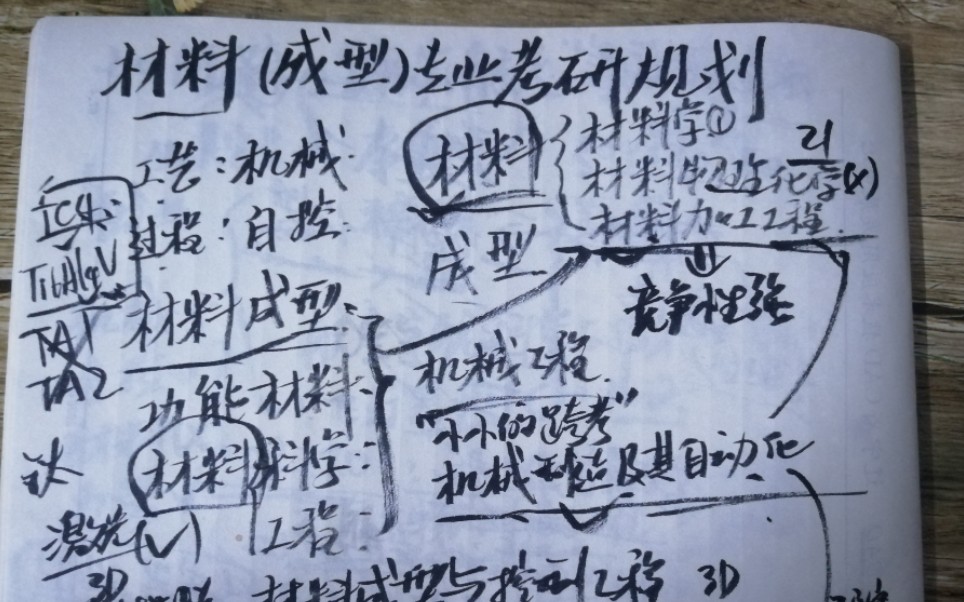 材料(成型)专业考研规划
工艺:机械
过程:自控
材料成型:
功能材料:
材料科学:
工程:
Ti6Al4V
TA1
TA2
钛
激光(√)
3D
材料
成型
材料学①
材料物理化学(x)
材料加工工程
竞争性强
机械工程
"小小的跨考"
机械制造及其自动化
材料成型与控制工程 3D